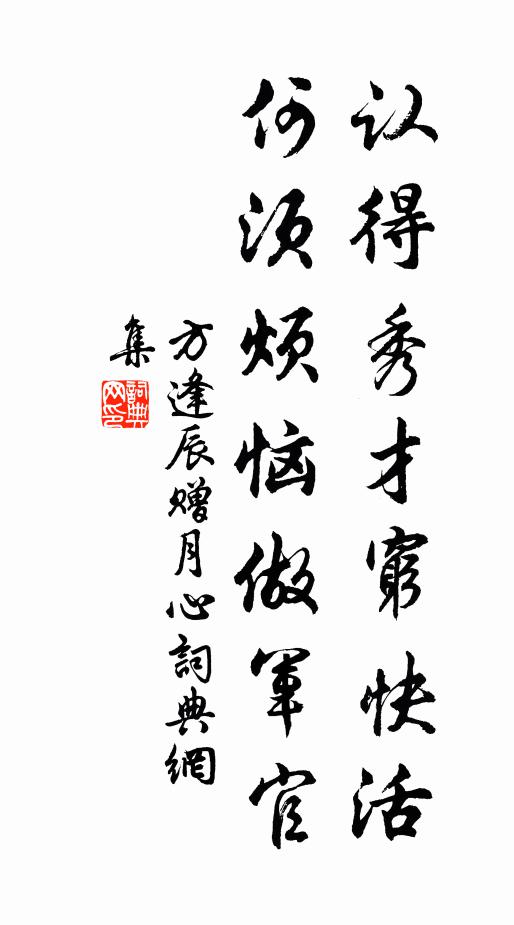 认得秀才穷快活
何须烦恼做军官
方逢辰赠月心詞典網
集
詞典网印